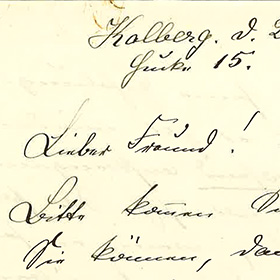 Kolberg. d. 2
15.
Lieber Freund!
Bitte kommen
Sie können, da